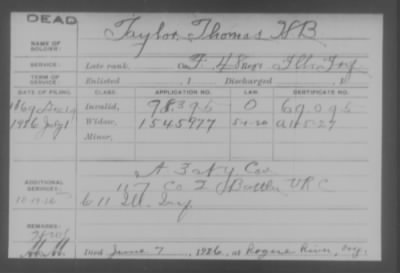 DEAD
NAME OF SOLDIER: Taylor, Thomas H B
SERVICE: Late rank, Co. F, 48 Reg't Ills Inf
TERM OF SERVICE: Enlisted , 1 Discharged , 1
DATE OF FILING. CLASS. APPLICATION NO. LAW. CERTIFICATE NO.
1869 Dec Invalid, 98396 O 69096
1926 July 1 Widow, 1545977 5-1-20 A-11-5-27
Minor,
A 3
ADDITIONAL SERVICES: 117 Co 2 Battln V R C
10-19-26 6 Ill. Inf
REMARKS:
Died June 7, 1926, at Rogue River, Oreg.